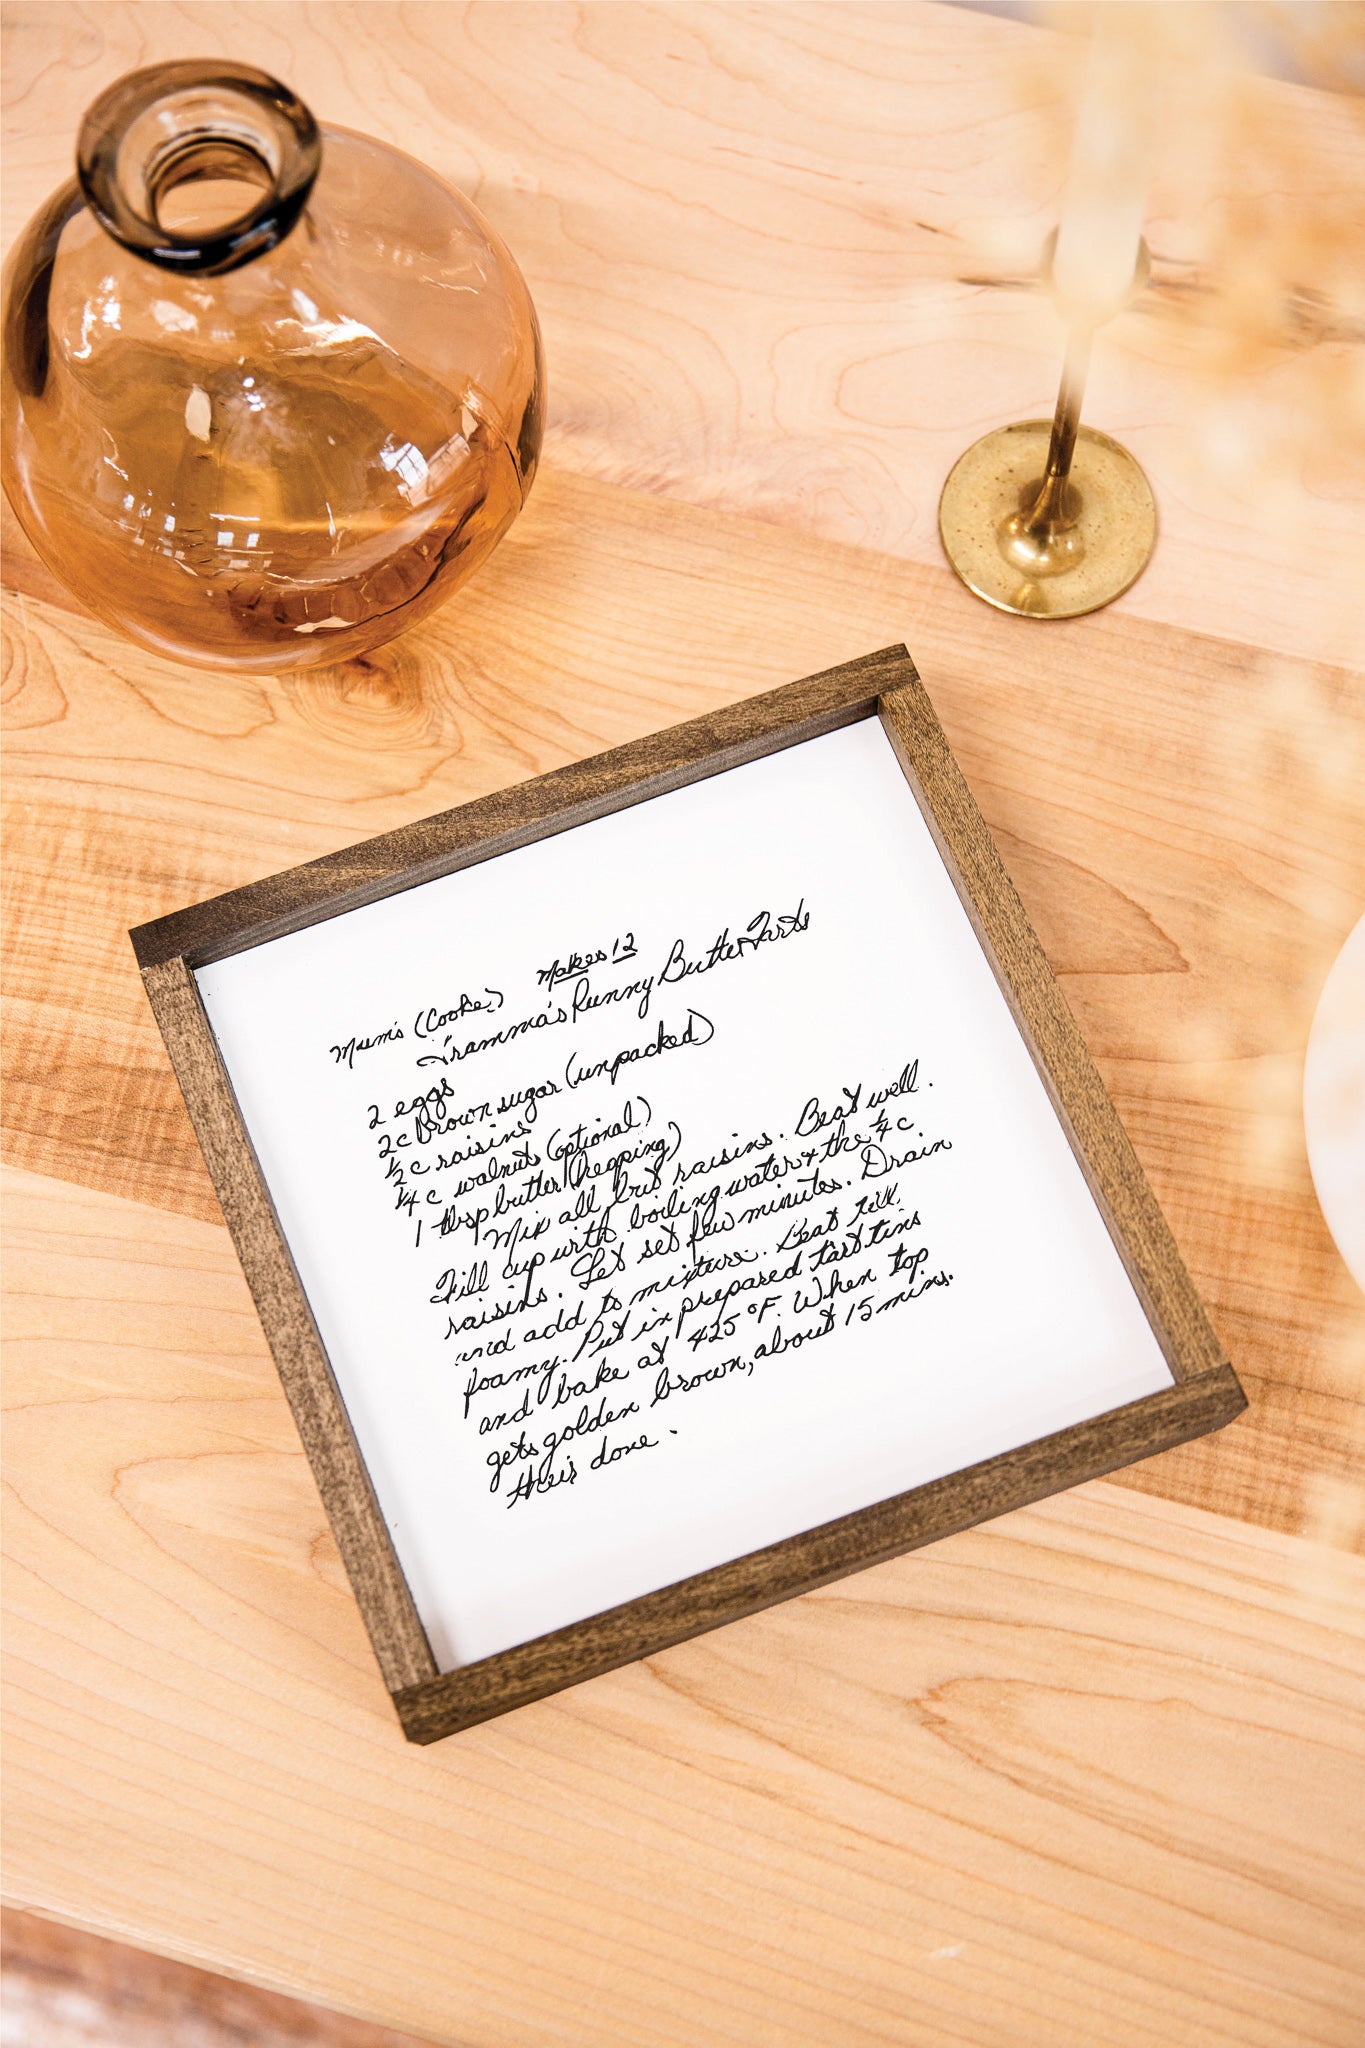 Makes 12
Mum's (Cooke)
Gramma's Runny Butter Tarts
2 eggs
2c brown sugar (unpacked)
½ c raisins
¼ c walnuts (optional)
1 tbsp butter (heaping)
Mix all but raisins. Beat well.
Fill cup with boiling water + the ¼ c
raisins. Let set few minutes. Drain
and add to mixture. Beat till
foamy. Put in prepared tart tins
and bake at 425°F. When top
gets golden brown, about 15 mins.
their done.